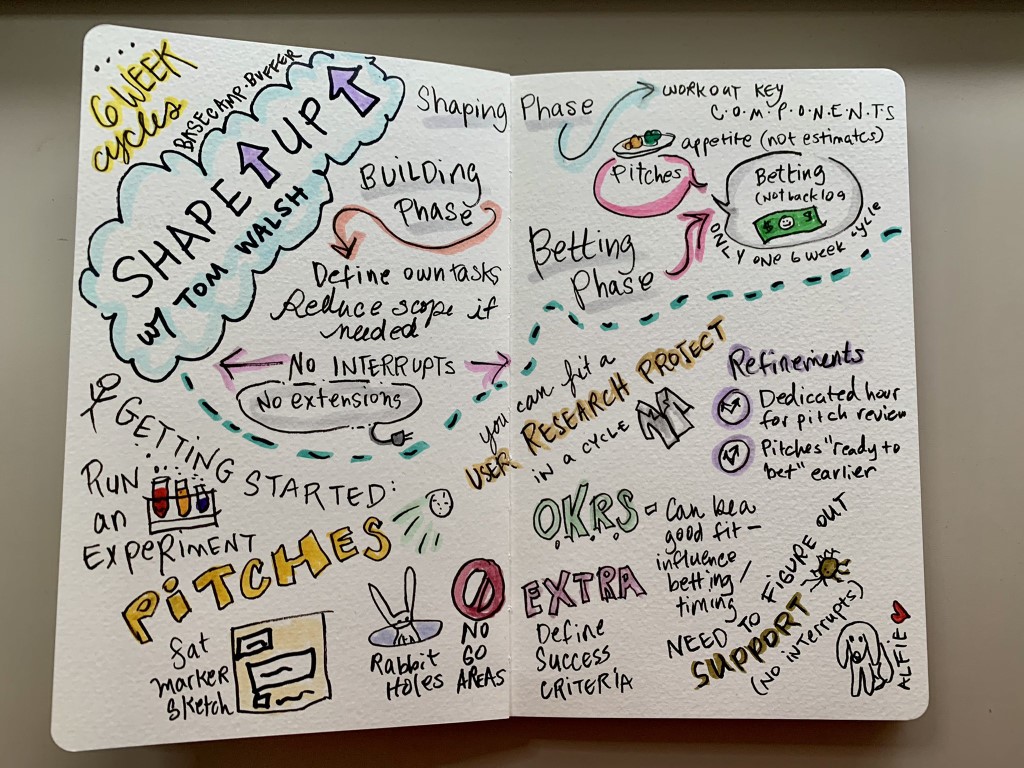 6 WEEK
cycles
BASECAMP. BUFFER
SHAPE UP
w/ TOM WALSH
Shaping Phase
WORK OUT KEY
C.O.M.P.O.N.E.N.T.S
appetite (not estimates)
Pitches
Betting
(Not backlog
$ $
ONLY ONE 6 week cycle
BUILDING
Phase
Define own tasks
Reduce scope if
needed
NO INTERRUPTS
No extensions
Betting
Phase
you can fit a
USER RESEARCH PROJECT
IN A CYCLE
Refinements
Dedicated hour
for pitch review
Pitches "ready to
bet" earlier
GETTING STARTED:
RUN
an
EXPERIMENT
PITCHES
Fat
marker
Sketch
Rabbit
HOLES
NO
GO
AREAS
O.K.R.S = Can be a
good fit -
influence
betting /
timing
EXTRA
Define
Success
CRITERIA
NEED TO FIGURE OUT
SUPPORT
(NO INTERRUPTS)
ALFIE